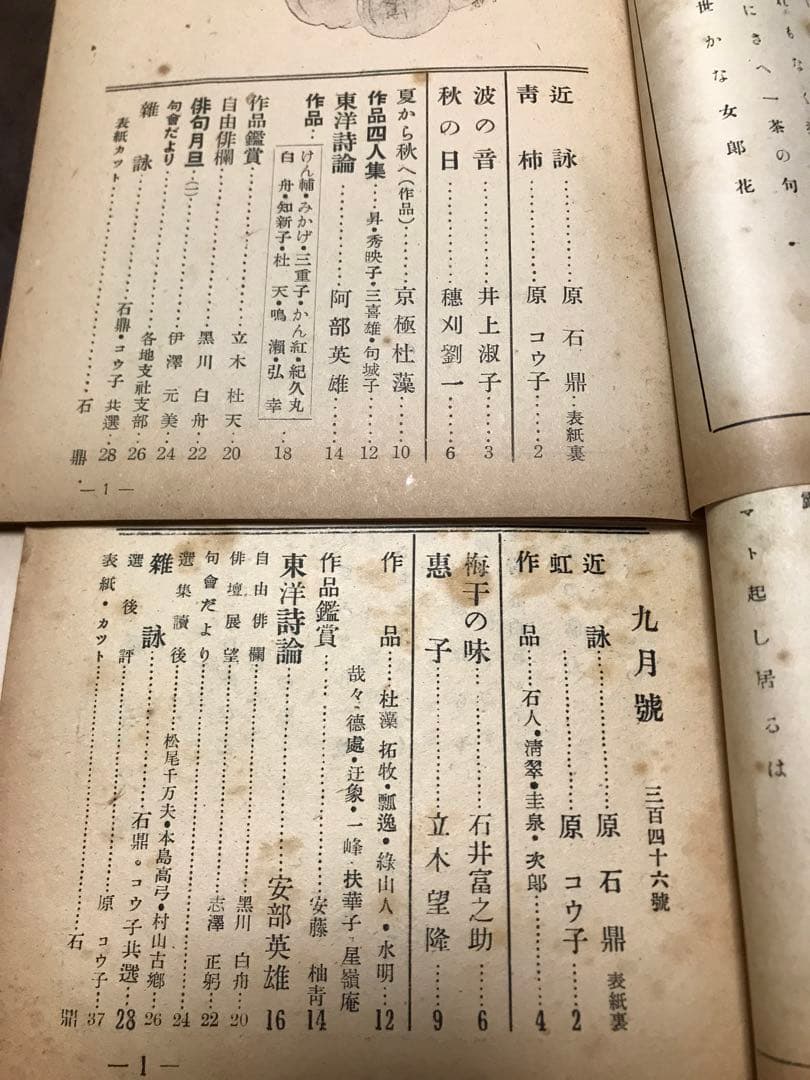 世かな女郎花
にさへ一茶の句
近詠……原石鼎…表紙裏
青柿……原コウ子……2
波の音……井上淑子……3
秋の日……穗刈劉一……6
夏から秋へ(作品)……京極杜藻……10
作品四人集……昇・秀映子・三喜雄・句城子……12
東洋詩論……阿部英雄……14
作品…けん輔・みかげ・三重子・かん紅・紀久丸
白舟・知新子・杜天・鳴瀬・弘幸……18
作品鑑賞……立木杜天……20
自由俳欄
俳句月旦(一)……黑川白舟……22
句會だより……伊澤元美……24
雜詠……各地支社支部……26
石鼎・コウ子共選…28
表紙カット……石鼎
— 1 —
マト起し居るは
九月號 三百四十六號
近詠……原石鼎 表紙裏
虹……原コウ子……2
作品……石人・淸翠・圭泉・次郎……4
梅干の味……石井富之助……6
惠子……立木望隆……9
作品……杜藻 拓牧・瓢逸・綠山人・水明……12
哉々・德處・迂象・一峰・扶華子・星嶺庵
作品鑑賞……安藤柚青……14
東洋詩論……安部英雄 16
自由俳欄……黑川白舟…20
俳壇展望……志澤正躬……22
句會だより……24
選集讀後……松尾千万夫・本島高弓・村山古鄕…26
雜詠……石鼎。コウ子共選……28
選後評……原コウ子…37
表紙・カット……石鼎
— 1 —